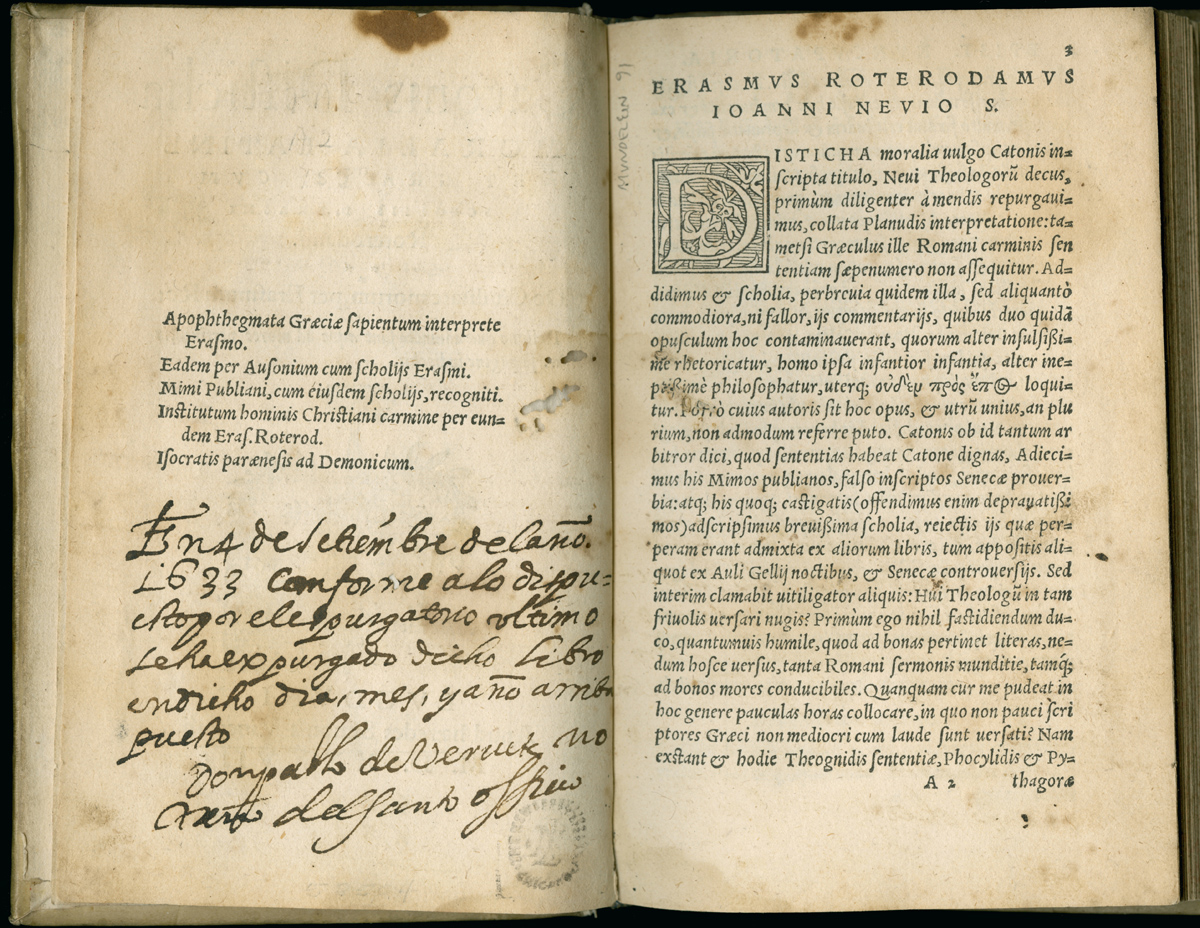 Apophthegmata Græciæ sapientum interprete
Erasmo.
Eadem per Ausonium cum scholijs Erasmi.
Mimi Publiani, cum eiusdem scholijs, recogniti.
Institutum hominis Christiani carmine per eun=
dem Eras. Roterod.
Isocratis parænesis ad Demonicum.
En 4 de setiembre del año.
1633 conforme a lo dispu=
esto por el espurgatorio ultimo
se ha expurgado dicho libro
en dicho dia, mes, y año arriba
puesto
Don de no
del santo officio
MUNDELEIN 91
3
ERASMVS ROTERODAMVS
IOANNI NEVIO S.
DISTICHA moralia uulgo Catonis in=
scripta titulo, Neui Theologorũ decus,
primùm diligenter à mendis repurgaui=
mus, collata Planudis interpretatione: ta=
metsi Græculus ille Romani carminis sen
tentiam sæpenumero non assequitur. Ad=
didimus & scholia, perbreuia quidem illa, sed aliquantò
commodiora, ni fallor, ijs commentarijs, quibus duo quidã
opusculum hoc contaminauerant, quorum alter insulsißi=
mè rhetoricatur, homo ipsa infantior infantia, alter ine=
ptißimè philosophatur, uterq; οὐδὲν πρὸς ἔπος loqui=
tur. Porrò cuius autoris sit hoc opus, & utrũ unius, an plu
rium, non admodum referre puto. Catonis ob id tantum ar
bitror dici, quod sententias habeat Catone dignas, Adieci=
mus his Mimos publianos, falso inscriptos Senecæ prouer=
bia: atq; his quoq; castigatis (offendimus enim deprauatißi
mos) adscripsimus breuißima scholia, reiectis ijs quæ per=
peram erant admixta ex aliorum libris, tum appositis ali=
quot ex Auli Gellij noctibus, & Senecæ controuersijs. Sed
interim clamabit uitiligator aliquis: Hui Theologũ in tam
friuolis uersari nugis? Primùm ego nihil fastidiendum du=
co, quantumuis humile, quod ad bonas pertinet literas, ne=
dum hosce uersus, tanta Romani sermonis munditie, tamq́;
ad bonos mores conducibiles. Quanquam cur me pudeat in
hoc genere pauculas horas collocare, in quo non pauci scri
ptores Græci non mediocri cum laude sunt uersati? Nam
exstant & hodie Theognidis sententiæ, Phocylidis & Py=
A 2 thagoræ